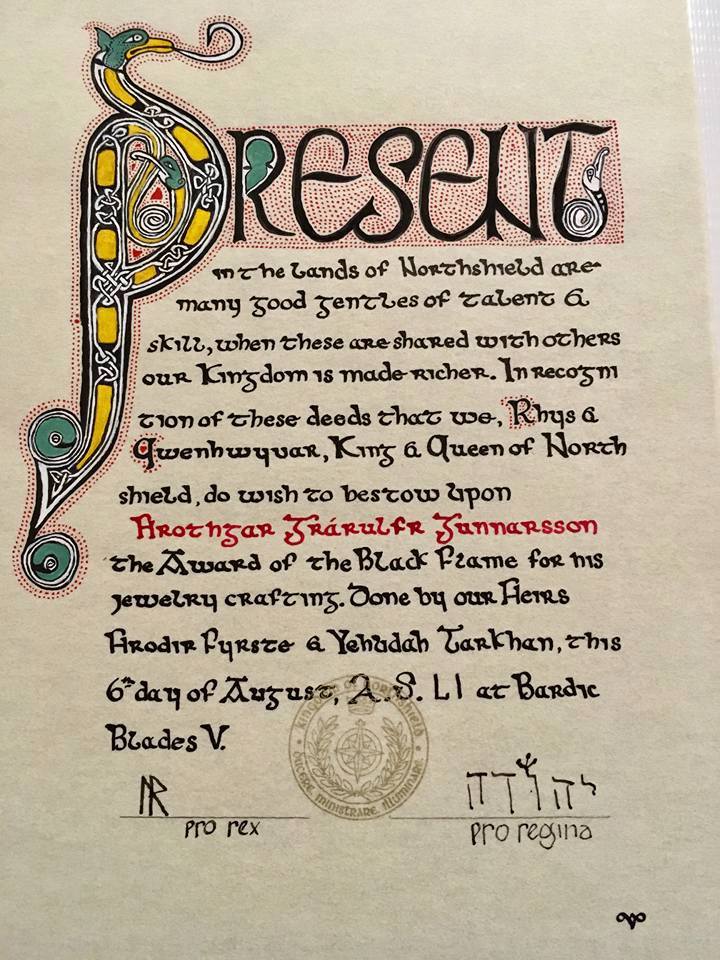 PRESENT
in the lands of Northshield are
many good gentles of talent &
skill, when these are shared with others
our Kingdom is made richer. In recogni
tion of these deeds that we, Rhys &
Gwenhwyvar, King & Queen of North
shield, do wish to bestow upon
Hrothgar Grárulfr Gunnarsson
the Award of the Black Flame for his
jewelry crafting. Done by our Heirs
Hrodir Fyrste & Yehudah Tarkhan, this
6th day of August, A.S. LI at Bardic
Blades V.
Kingdom of Northshield
Ducere Ministrare Illuminare
יהודה
pro rex
pro regina